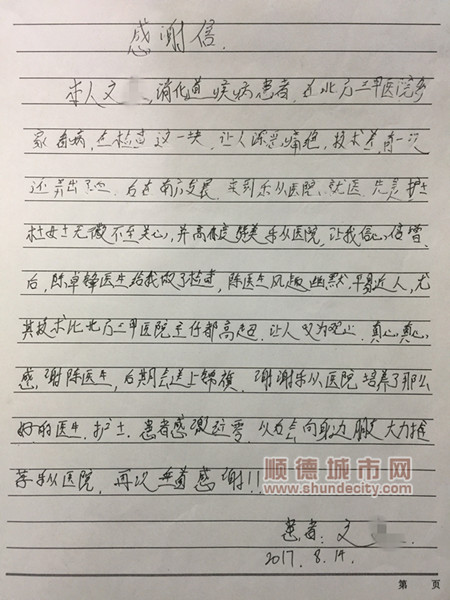 感谢信
本人文 ,消化道疾病患者,在北方三甲医院多
家看病,在检查这一块,让人深受痛绝,技术差,有一次
还弄出了血.后在南方发展,来到乐从医院,就医,先是护士
杜女士无微不至关心,并高度赞美乐从医院,让我信心倍增.
后,陈卓锋医生给我做了检查,陈医生风趣幽默,平易近人,尤
其技术比北方三甲医院主任都高超.让人叹为观止.真心真心
感谢陈医生,后期会送上锦旗.谢谢乐从医院培养了那么
好的医生,护士.患者感激 以后会向身边朋友大力推
荐乐从医院,再次 感谢!!
顺德城市网
www.shundecity.com
患者:文
2017.8.14.
第 页